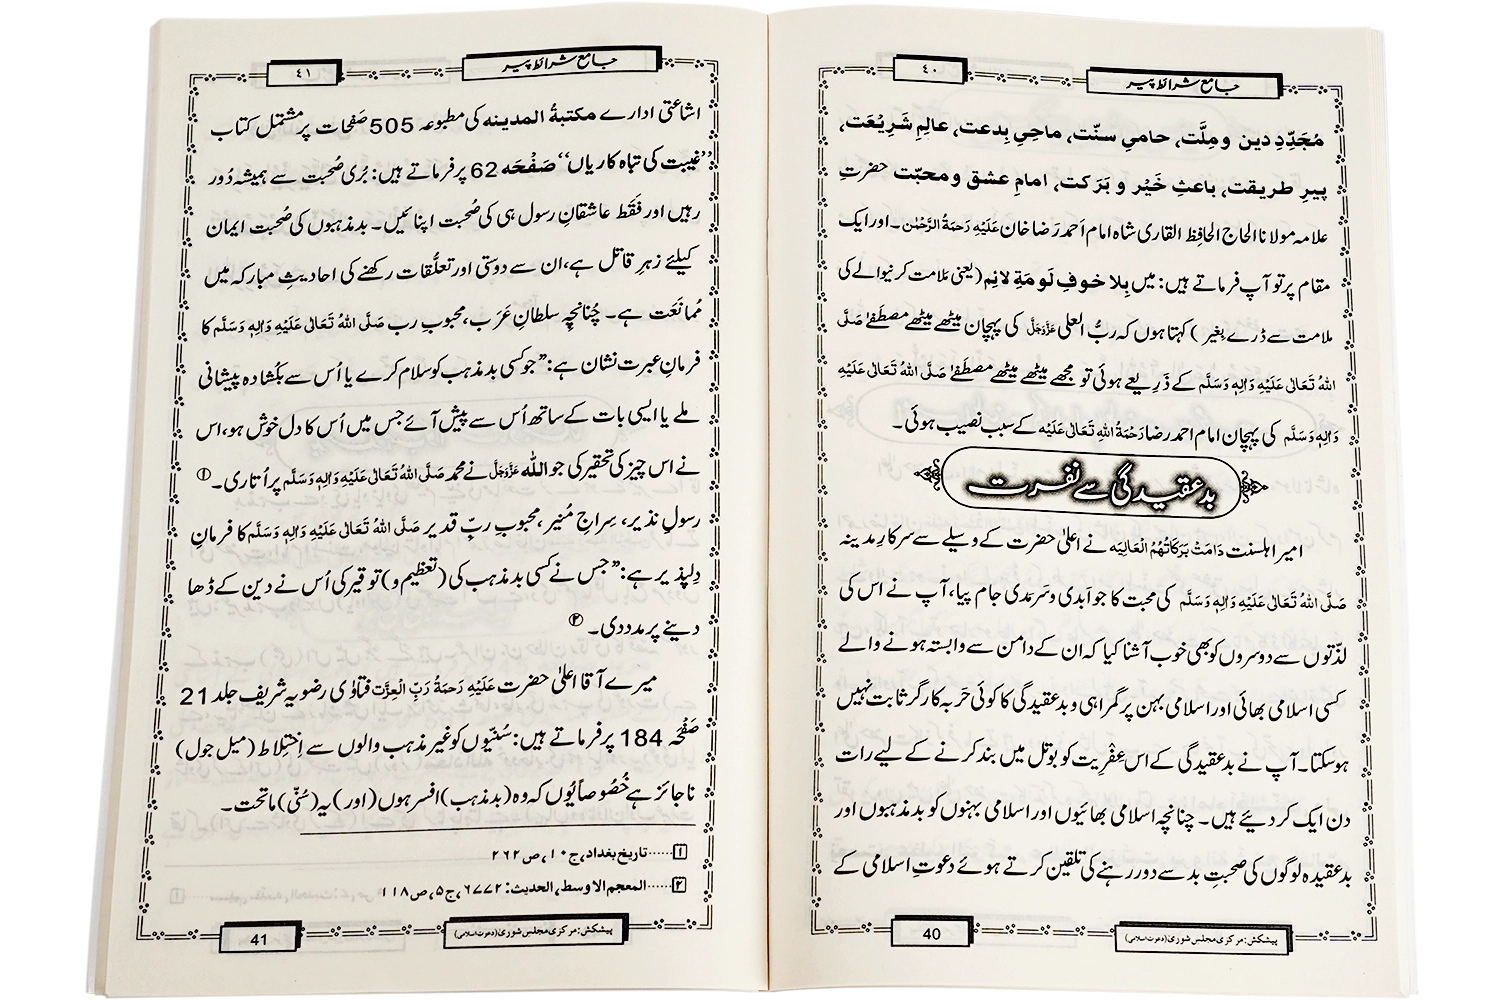 جامع شرائط پیر
٤٠
مُجَدِّدِ دین و مِلَّت، حامیِ سنّت، ماحیِ بِدعت، عالِمِ شَرِیْعَت،
پیرِ طریقت، باعثِ خَیْر و بَرَکت، امامِ عشق و محبّت حضرتِ
علامہ مولانا الحاج الحافِظ القاری شاہ امام اَحمد رَضا خان عَلَیْہِ رَحمَۃُ الرَّحْمٰن ۔ اور ایک
مقام پر تو آپ فرماتے ہیں: میں بِلا خوفِ لَومَۃِ لائِم (یعنی مَلامت کرنیوالے کی
ملامت سے ڈرے بغیر) کہتا ہوں کہ ربُّ العلٰی عَزَّوَجَلَّ کی پہچان میٹھے میٹھے مصطفٰے صَلَّی
اللہُ تَعَالٰی عَلَیْہِ وَاٰلِہٖ وَسَلَّم کے ذَرِیعے ہوئی تو مجھے میٹھے میٹھے مصطَفٰے صَلَّی اللہُ تَعَالٰی عَلَیْہِ
وَاٰلِہٖ وَسَلَّم کی پہچان امام احمد رضا رَحْمَۃُ اللہِ تَعَالٰی عَلَیْہِ کے سبب نصیب ہوئی۔
بدعقیدگی سے نفرت
امیرِ اہلسنت دَامَتْ بَرَکَاتُہُمُ الْعَالِیَہ نے اعلیٰ حضرت کے وسیلے سے سرکارِ مدینہ
صَلَّی اللہُ تَعَالٰی عَلَیْہِ وَاٰلِہٖ وَسَلَّم کی محبت کا جو اَبدی و سَرمَدی جام پیا، آپ نے اس کی
لذّتوں سے دوسروں کو بھی خوب آشنا کیا کہ ان کے دامن سے وابستہ ہونے والے
کسی اسلامی بھائی اور اسلامی بہن پر گمراہی و بدعقیدگی کا کوئی حَربہ کارگر ثابت نہیں
ہوسکتا۔ آپ نے بدعقیدگی کے اس عِفْرِیت کو بوتل میں بند کرنے کے لیے رات
دن ایک کر دیئے ہیں۔ چنانچہ اسلامی بھائیوں اور اسلامی بہنوں کو بدمذہبوں اور
بدعقیدہ لوگوں کی صحبتِ بد سے دور رہنے کی تلقین کرتے ہوئے دعوتِ اسلامی کے
40
پیشکش: مرکزی مجلس شوریٰ (دعوتِ اسلامی)
جامع شرائط پیر
٤١
اشاعتی ادارے مکتبۃُ المدینہ کی مطبوعہ 505 صَفحات پر مشتمل کتاب
’’غیبت کی تباہ کاریاں‘‘ صَفْحَہ 62 پر فرماتے ہیں: بُری صُحبت سے ہمیشہ دُور
رہیں اور فَقَط عاشقانِ رسول ہی کی صُحبت اپنائیں۔ بدمذہبوں کی صُحبت ایمان
کیلئے زہرِ قاتل ہے، ان سے دوستی اور تعلُّقات رکھنے کی احادیثِ مبارکہ میں
مُمانَعَت ہے۔ چُنانچِہ سلطانِ عَرَب، محبوبِ رب صَلَّی اللہُ تَعَالٰی عَلَیْہِ وَاٰلِہٖ وَسَلَّم کا
فرمانِ عبرت نشان ہے: ’’جو کسی بدمذہب کو سلام کرے یا اُس سے بکُشادہ پیشانی
ملے یا ایسی بات کے ساتھ اُس سے پیش آئے جس میں اُس کا دل خوش ہو، اس
نے اس چیز کی تحقیر کی جو اللہ عَزَّوَجَلَّ نے محمد صَلَّی اللہُ تَعَالٰی عَلَیْہِ وَاٰلِہٖ وَسَلَّم پر اُتاری۔ ①
رسولِ نذیر، سِراجِ مُنیر، محبوبِ ربِّ قدیر صَلَّی اللہُ تَعَالٰی عَلَیْہِ وَاٰلِہٖ وَسَلَّم کا فرمانِ
دِلپذیر ہے: ’’جس نے کسی بدمذہب کی (تعظیم و) توقیر کی اُس نے دین کے ڈھا
دینے پر مدد دی۔ ②
میرے آقا اعلیٰ حضرت عَلَیْہِ رَحمَۃُ رَبِّ الْعِزَّت فتاوٰی رضویہ شریف جلد 21
صَفْحَہ 184 پر فرماتے ہیں: سُنّیوں کو غیر مذہب والوں سے اِخْتِلاط (میل جول)
ناجائز ہے خُصُوصاً یُوں کہ وہ (بدمذہب) افسر ہوں (اور) یہ (سُنّی) ماتحت۔
١ ......تاریخ بغداد، ج١٠، ص٢٦٢
٢ ......المعجم الاوسط، الحدیث: ٦٧٧٢، ج٥، ص١١٨
پیشکش: مرکزی مجلس شوریٰ (دعوتِ اسلامی)
41